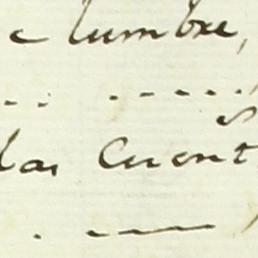 e lumbre,
.. . - - - - -
las Cuent
. - —